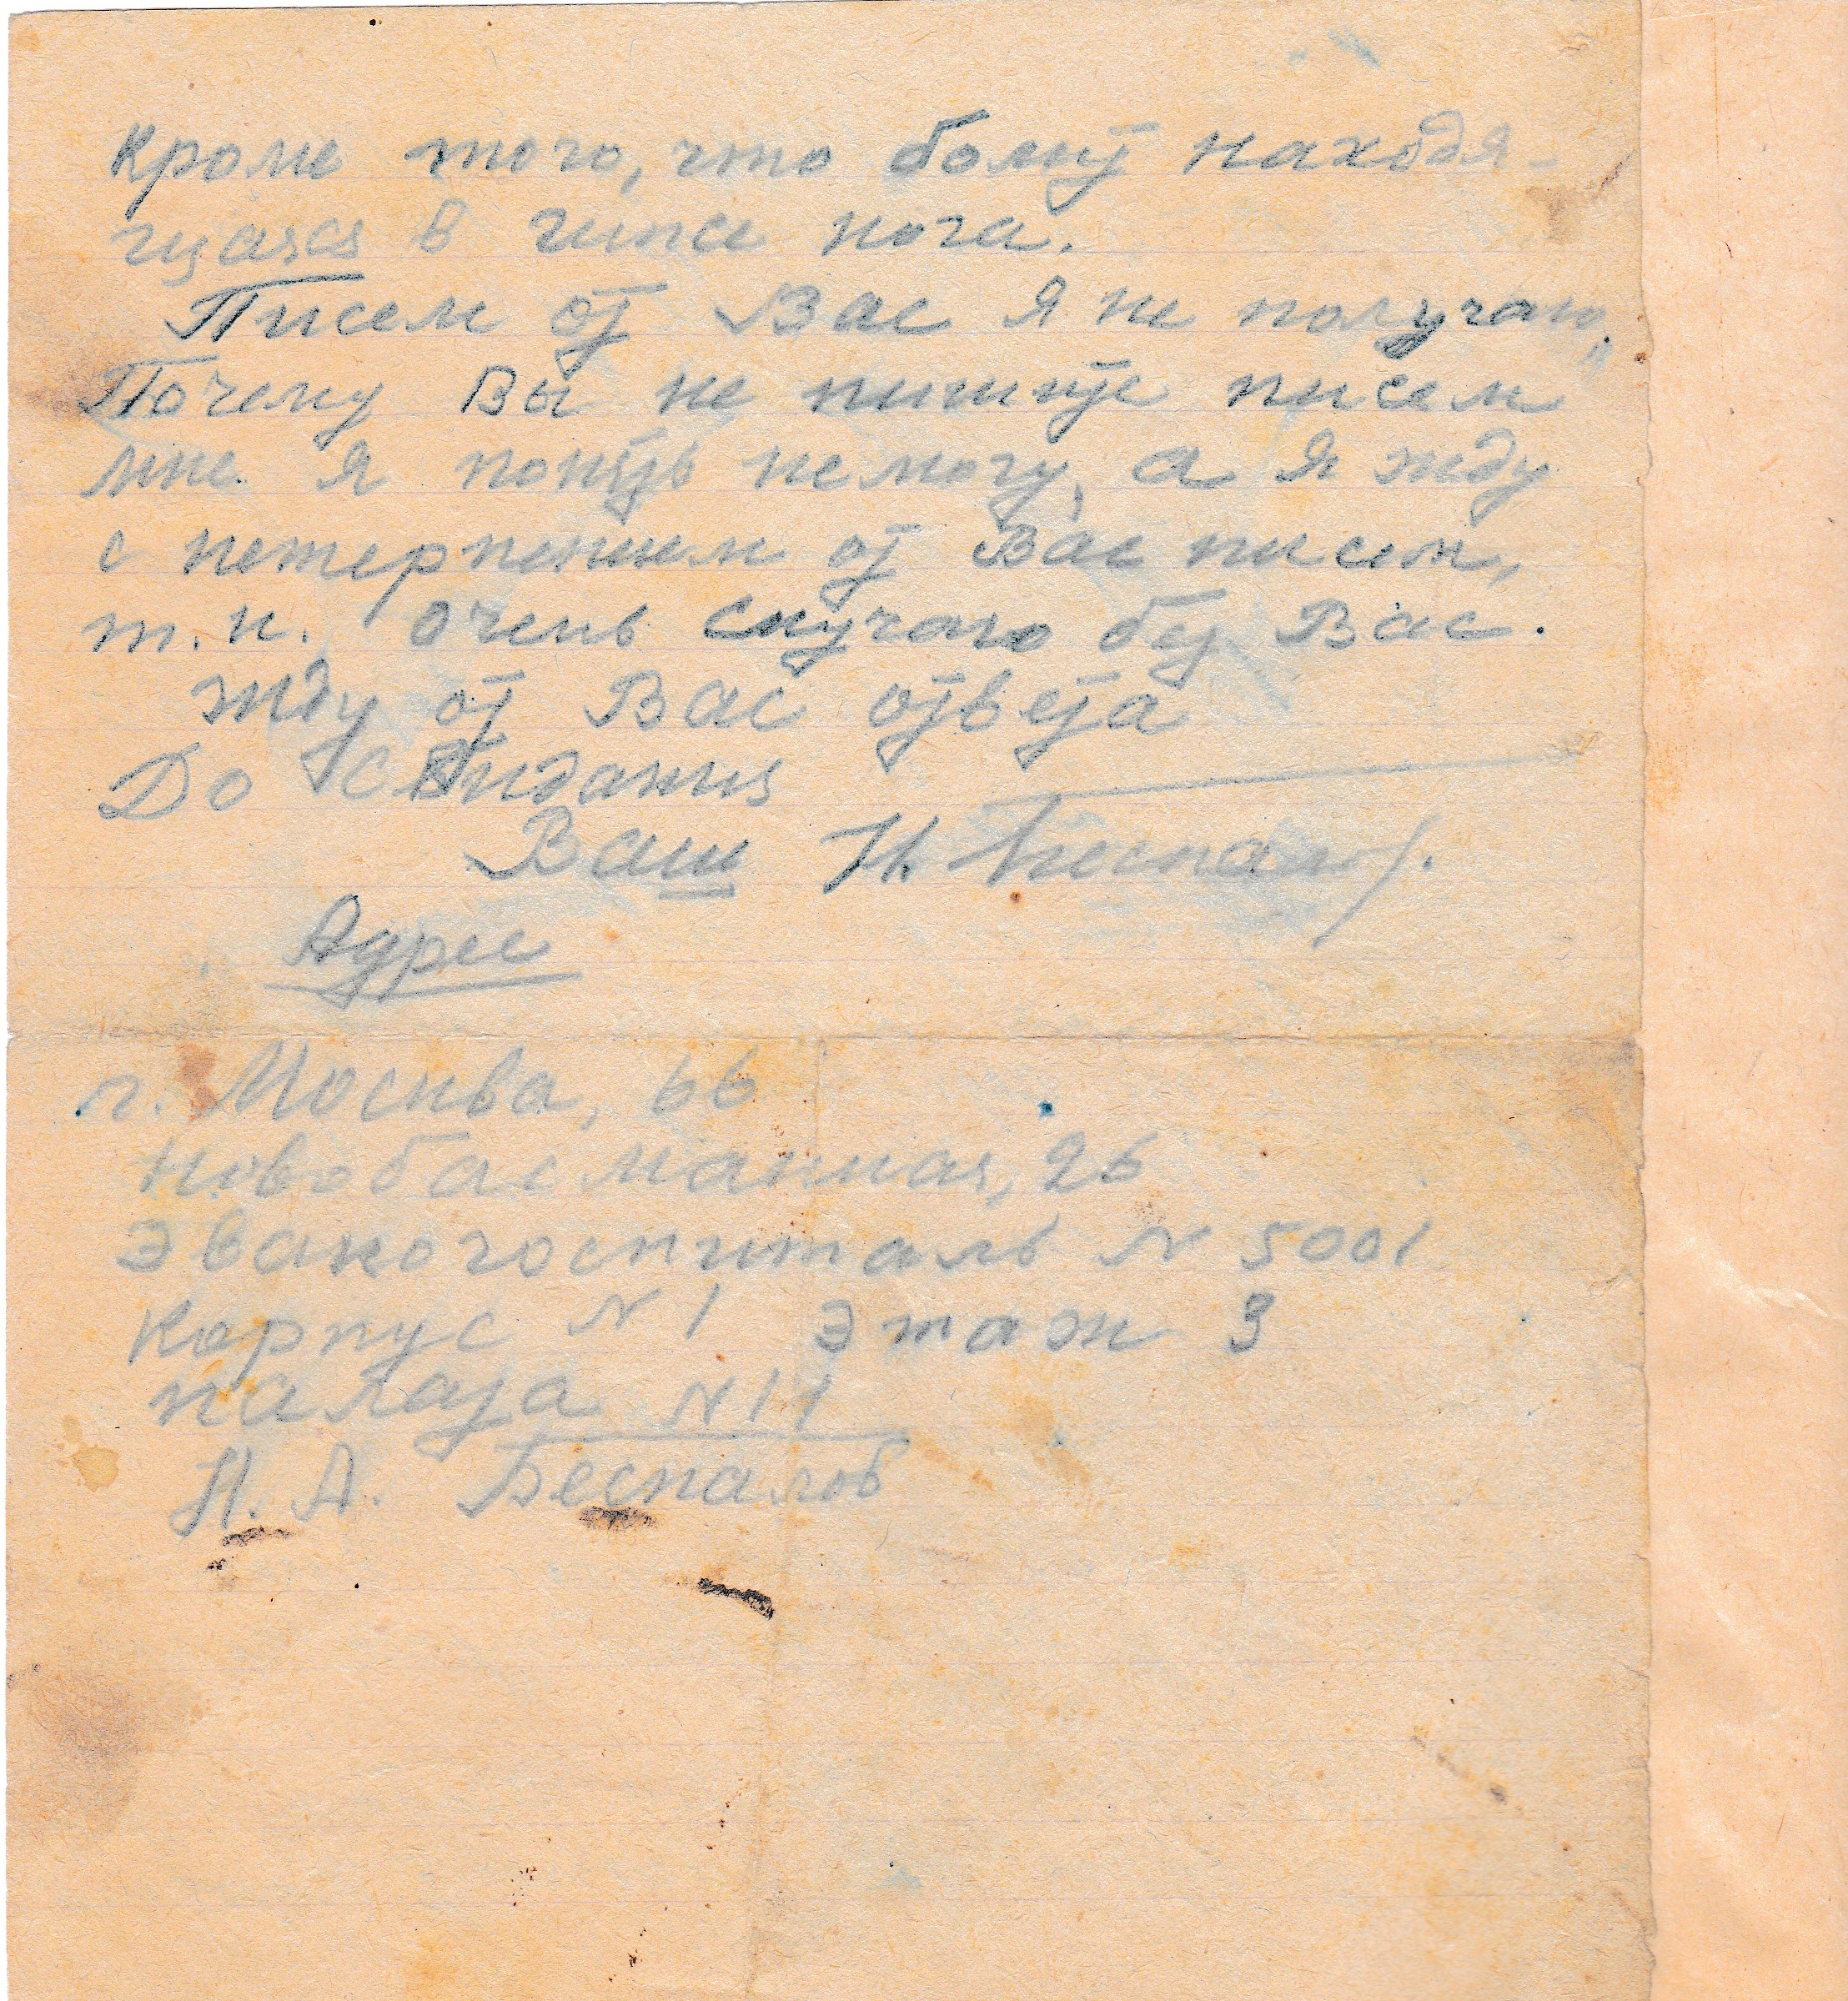 Кроме того, что болит находя-
щаяся в гипсе нога.
Писем от Вас я не получаю,
Почему Вы не пишите писем
мне я понять не могу, а я жду
с нетерпением от Вас писем,
т.к. очень скучаю без Вас.
Жду от Вас ответа
До Свидания
Ваш Н. Беспалов.
Адрес
г. Москва, 66
Новобасманная, 26
Эвакогоспиталь N 5001
Корпус N 1 Этаж 3
палата N 11
Н. А. Беспалов